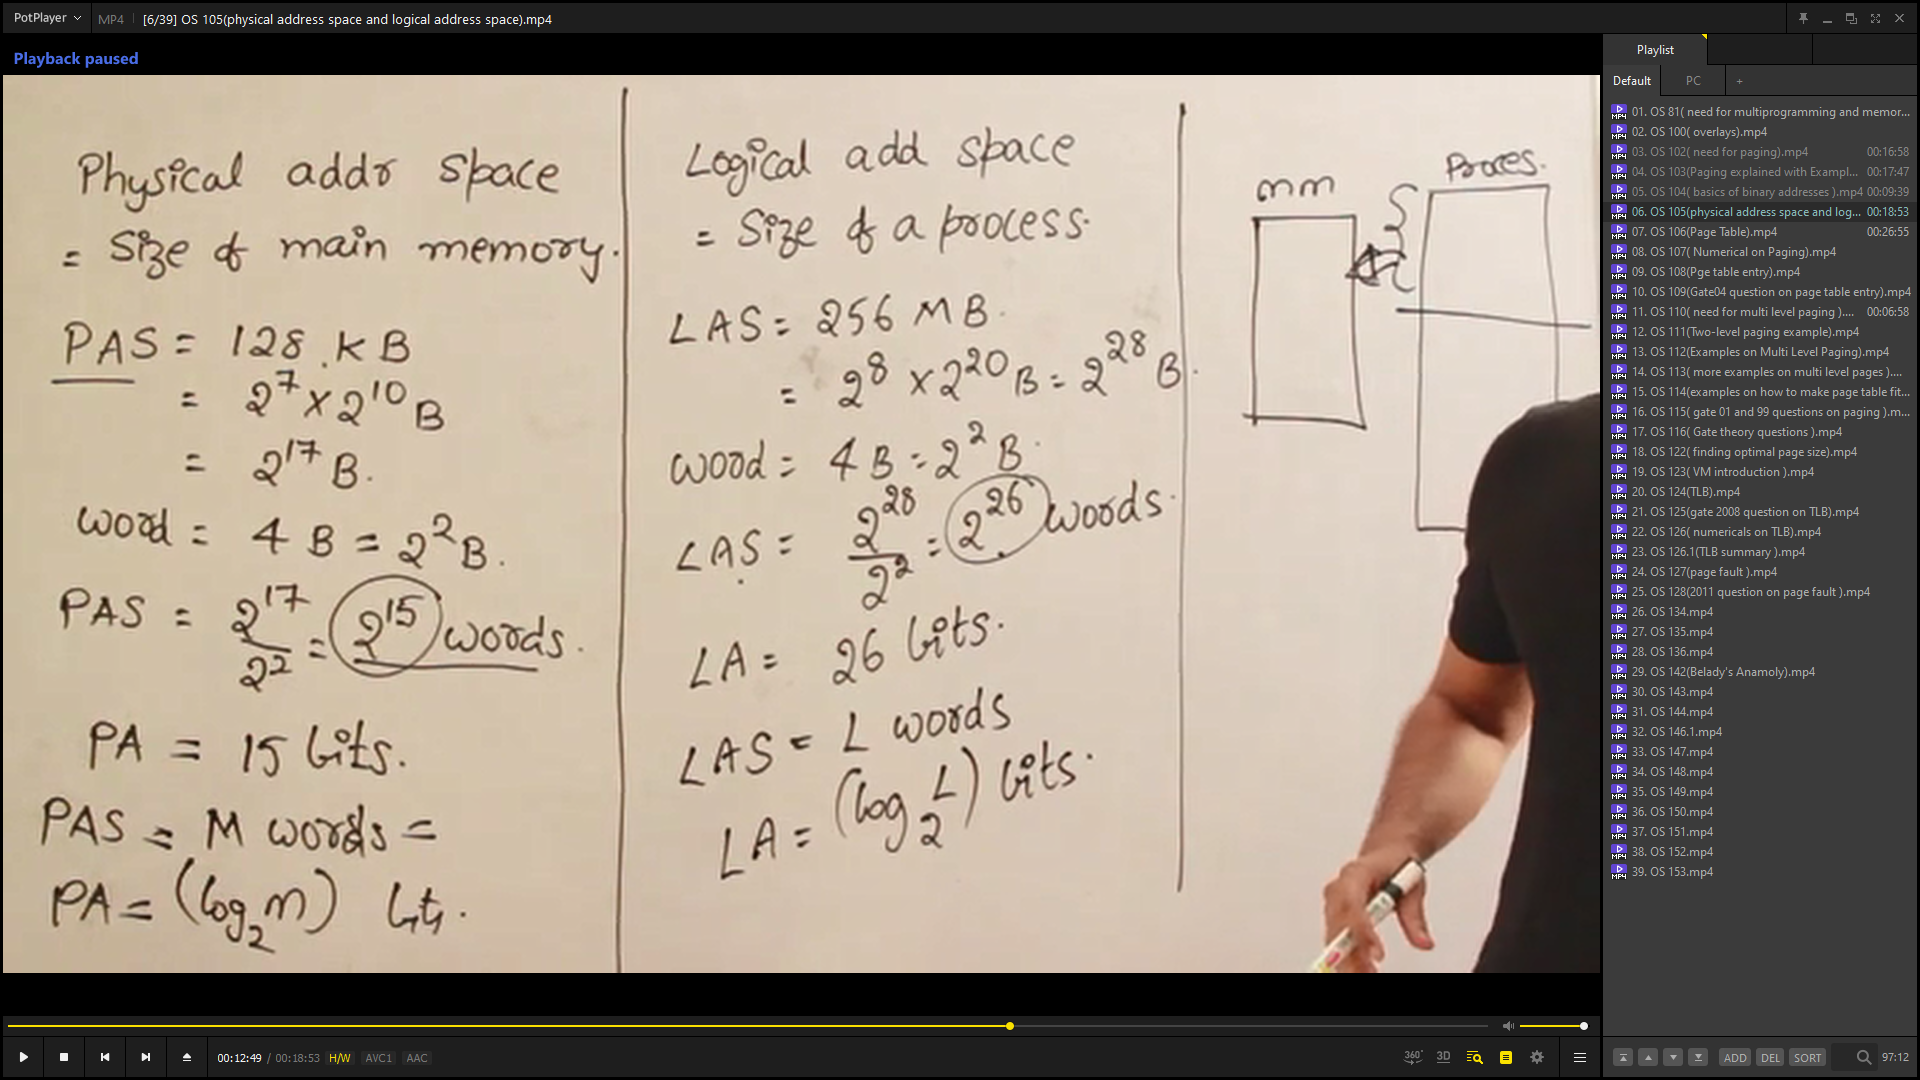 PotPlayer
MP4
[6/39] OS 105(physical address space and logical address space).mp4
Playback paused
Physical addr space
= Size of main memory.
PAS = 128 KB
= 2^7 x 2^10 B
= 2^17 B.
word = 4 B = 2^2 B.
PAS = 2^17 / 2^2 = 2^15 words.
PA = 15 bits.
PAS = M words =
PA = (log_2 m) bits.
Logical add space
= Size of a process.
LAS = 256 MB.
= 2^8 x 2^20 B = 2^28 B.
word = 4 B = 2^2 B.
LAS = 2^28 / 2^2 = 2^26 words.
LA = 26 bits.
LAS = L words
LA = (log_2 L) bits.
mm
Proces.
00:12:49 / 00:18:53 H/W AVC1 AAC
360°
3D
Playlist
Default
PC
+
01. OS 81( need for multiprogramming and memor...
02. OS 100( overlays).mp4
03. OS 102( need for paging).mp4 00:16:58
04. OS 103(Paging explained with Exampl... 00:17:47
05. OS 104( basics of binary addresses ).mp4 00:09:39
06. OS 105(physical address space and log... 00:18:53
07. OS 106(Page Table).mp4 00:26:55
08. OS 107( Numerical on Paging).mp4
09. OS 108(Pge table entry).mp4
10. OS 109(Gate04 question on page table entry).mp4
11. OS 110( need for multi level paging ).... 00:06:58
12. OS 111(Two-level paging example).mp4
13. OS 112(Examples on Multi Level Paging).mp4
14. OS 113( more examples on multi level pages )....
15. OS 114(examples on how to make page table fit...
16. OS 115( gate 01 and 99 questions on paging ).m...
17. OS 116( Gate theory questions ).mp4
18. OS 122( finding optimal page size).mp4
19. OS 123( VM introduction ).mp4
20. OS 124(TLB).mp4
21. OS 125(gate 2008 question on TLB).mp4
22. OS 126( numericals on TLB).mp4
23. OS 126.1(TLB summary ).mp4
24. OS 127(page fault ).mp4
25. OS 128(2011 question on page fault ).mp4
26. OS 134.mp4
27. OS 135.mp4
28. OS 136.mp4
29. OS 142(Belady's Anamoly).mp4
30. OS 143.mp4
31. OS 144.mp4
32. OS 146.1.mp4
33. OS 147.mp4
34. OS 148.mp4
35. OS 149.mp4
36. OS 150.mp4
37. OS 151.mp4
38. OS 152.mp4
39. OS 153.mp4
ADD
DEL
SORT
97:12